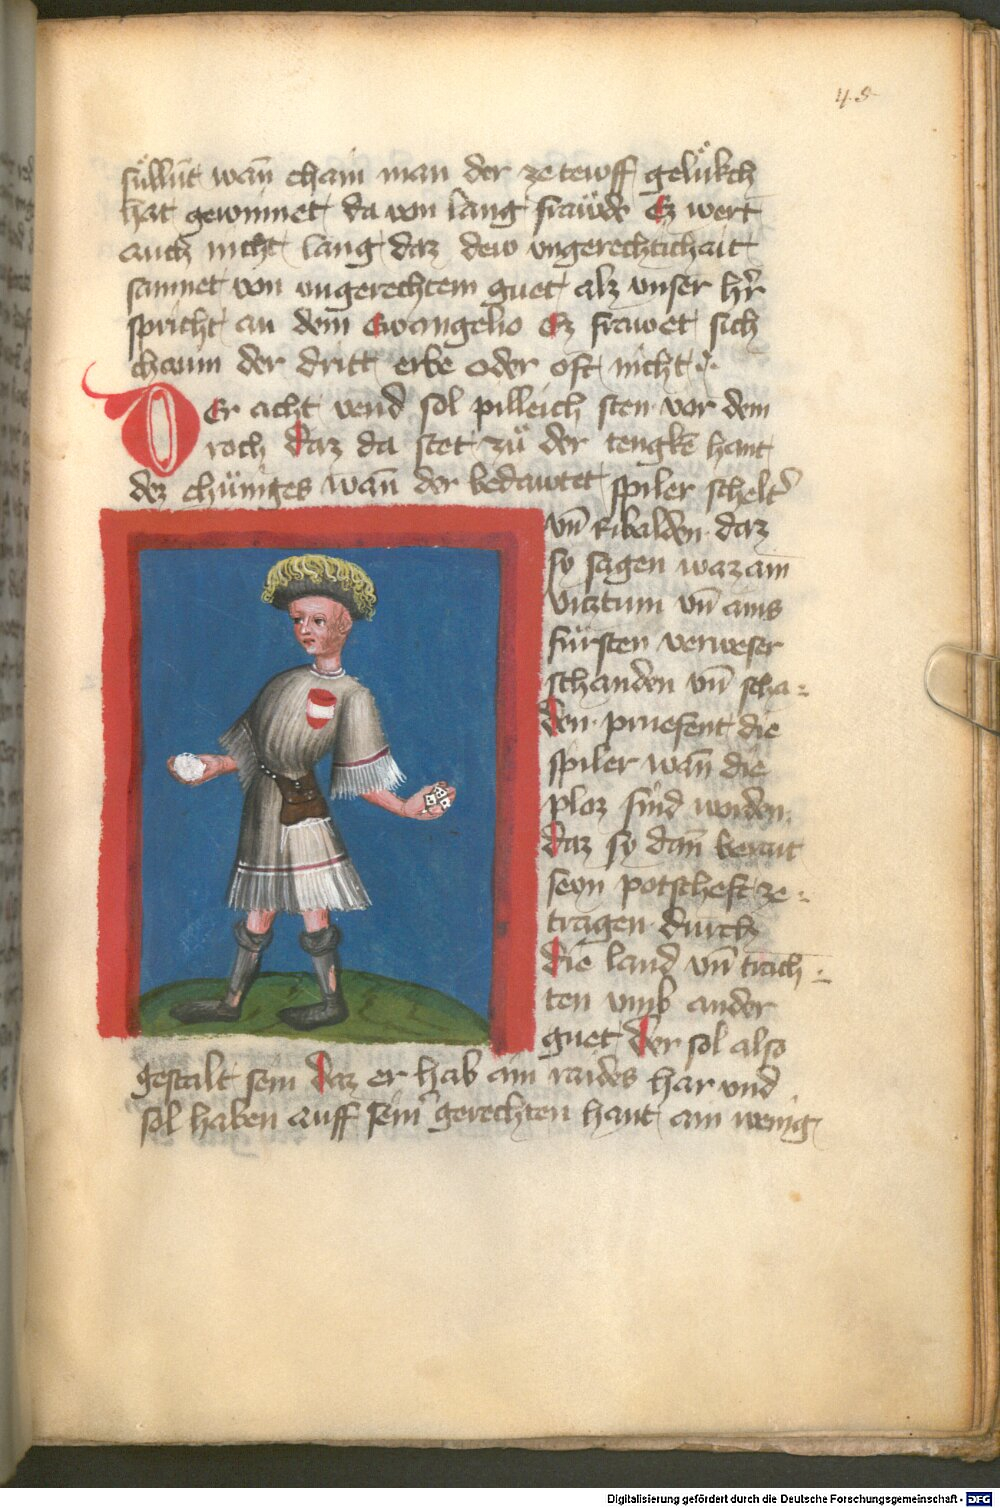 45
süllnt wañ chain man der ze tewff gelükch
hat gewinnet da von lang frawde Ez wert
auch nicht lang daz dew vngerechtichait
samnet von vngerechtem guet alz vnser hr̄
spricht an dem Ewangelio Ez frawet sich
chaum der dritt erbe oder oft nicht
Der acht vend sol pilleich sten vor dem
roch daz da stet zů der tengkñ hant
dez chüniges wañ der bedawtet spiler schelt᷑
vñ Ribalden daz
sy sagen waz ain
viztum vñ ains
fürsten verweser
schanden vñ scha-
den pruefent die
spiler wañ die
ploz sind worden
daz sy dañ berait
seyn potscheft ze
tragen durch
die land vñ trach-
ten vmb ander
guet der sol also
gestalt sein daz er hab ain raides har vnd
sol haben auff sein᷑ gerechten hant ain wenig
Digitalisierung gefördert durch die Deutsche Forschungsgemeinschaft - DFG